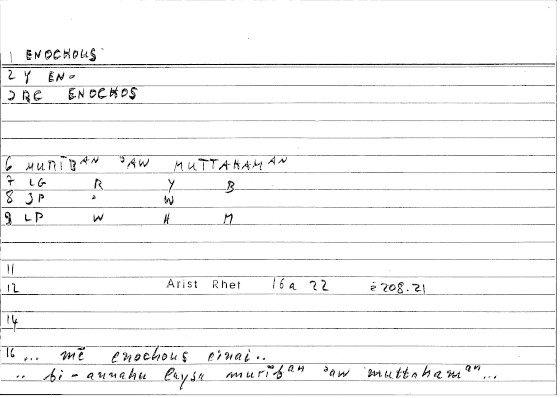 1 ENOCHOUS
2 Y ENO
3 RC ENOCHOS
6 MURĪBAN ʾAW MUTTAHAMAN
7 LG R Y B
8 JP ʾ W
9 LP W H M
11
12 Arist Rhet 16a 22 208.21
14
16 ... mē enochous einai..
.. bi-annahu laysa murīban ʾaw muttahaman...